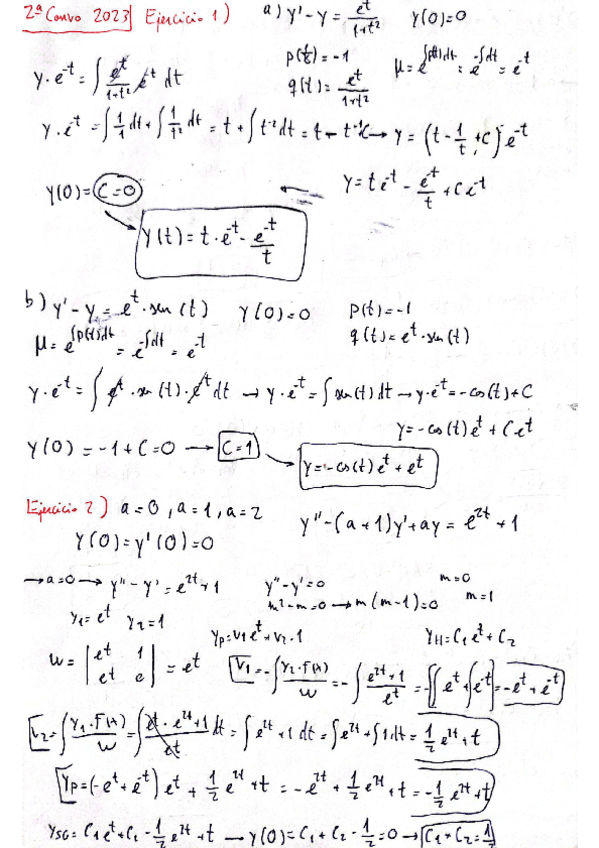 2ª Convo 2023 Ejercicio 1) a) y' - y = e^t/(1+t²) y(0)=0
p(t) = -1 μ = e^∫p(t)dt = e^-∫dt = e^-t
y·e^-t = ∫ e^t/(1+t²) e^-t dt q(t) = e^t/(1+t²)
y·e^-t = ∫ 1/1 dt + ∫ 1/t² dt = t + ∫ t^-2 dt = t - t^-1 + C → y = (t - 1/t + C) e^-t
y = t e^-t - e^-t/t + C e^-t
y(0) = C = 0
y(t) = t·e^-t - e^-t/t
b) y' - y = e^t · sen(t) y(0)=0 p(t) = -1
μ = e^∫p(t)dt = e^-∫dt = e^-t q(t) = e^t · sen(t)
y·e^-t = ∫ e^t · sen(t) · e^-t dt → y·e^-t = ∫ sen(t) dt → y·e^-t = -cos(t) + C
y = -cos(t) e^t + C e^t
y(0) = -1 + C = 0 → C = 1
y = -cos(t) e^t + e^t
Ejercicio 2) a=0, a=1, a=2 y'' - (a+1)y' + ay = e^2t + 1
y(0) = y'(0) = 0
→ a=0 → y'' - y' = e^2t + 1 y'' - y' = 0 m=0
m² - m = 0 → m(m-1) = 0 m=1
y1 = e^t y2 = 1
yp = v1 e^t + v2·1 yH = C1 e^t + C2
w = |e^t 1; e^t 0| = e^t V1 = -∫ y2·F(x)/w = -∫ (e^2t + 1)/e^t = -[∫e^t + ∫e^-t] = -e^t + e^-t
V2 = ∫ y1·F(x)/w = ∫ e^t · e^2t + 1/e^t dt = ∫ e^2t + 1 dt = ∫ e^2t + ∫ 1 dt = 1/2 e^2t + t
yp = (-e^t + e^-t) e^t + 1/2 e^2t + t = -e^2t + 1/2 e^2t + t = -1/2 e^2t + t
ySG = C1 e^t + C2 - 1/2 e^2t + t → y(0) = C1 + C2 - 1/2 = 0 → C1 + C2 = 1/2